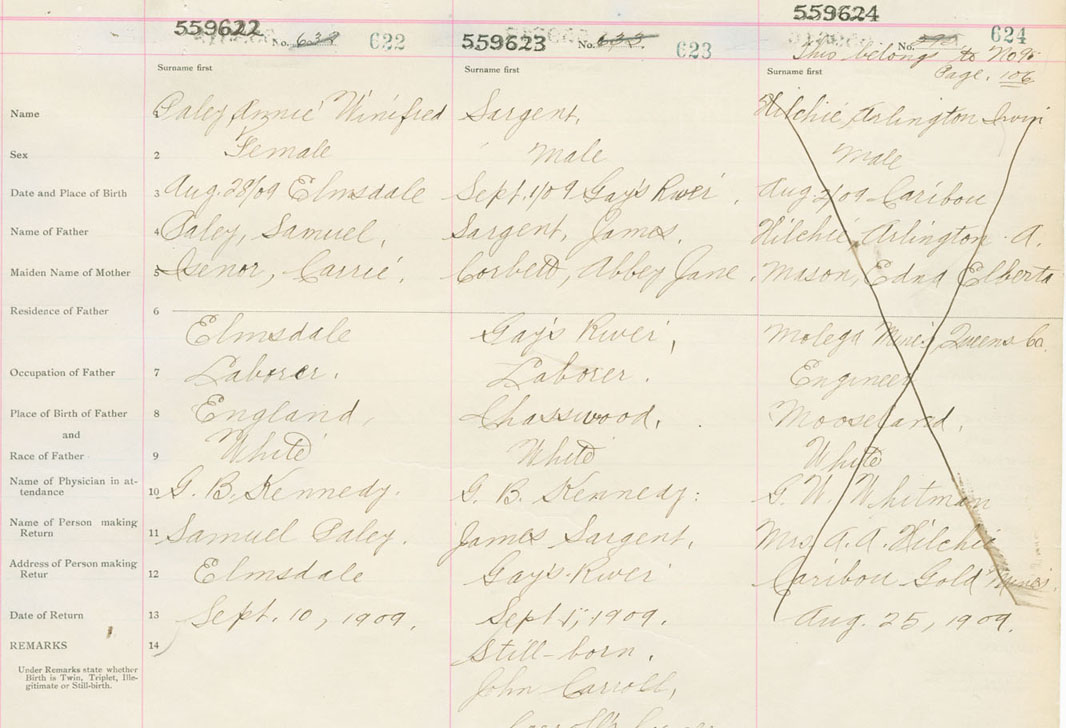 559622 No. 638 622
559623 No. 622 623
559624 No. 624
This belongs to No 95
Page. 106
Surname first Surname first Surname first
Name 1 Paley, Annie Winifred Sargent, Hilchie, Arlington Irvin
Sex 2 Female Male Male
Date and Place of Birth 3 Aug. 28/09 Elmsdale Sept. 1/09 Gay's River. Aug 2/09 Caribou
Name of Father 4 Paley, Samuel, Sargent, James. Hilchie, Arlington. A.
Maiden Name of Mother 5 Isenor, Carrie. Corbett, Abbey Jane. Mason, Edna Elberta
Residence of Father 6
Elmsdale Gay's River, Molega Mines, Queens Co.
Occupation of Father 7 Laborer. Laborer. Engineer
Place of Birth of Father 8 England, Chasswood. Mooseland.
and
Race of Father 9 White White White
Name of Physician in at-
tendance 10 G. B. Kennedy. G. B. Kennedy: G. W. Whitman
Name of Person making
Return 11 Samuel Paley. James Sargent. Mrs. A. A. Hilchie
Address of Person making
Retur 12 Elmsdale Gay's River Caribou Gold Mines.
Date of Return 13 Sept. 10, 1909. Sept 1, 1909. Aug. 25, 1909.
REMARKS 14 Still-born.
Under Remarks state whether
Birth is Twin, Triplet, Ille-
gitimate or Still-birth.
John Carroll,
Carroll's